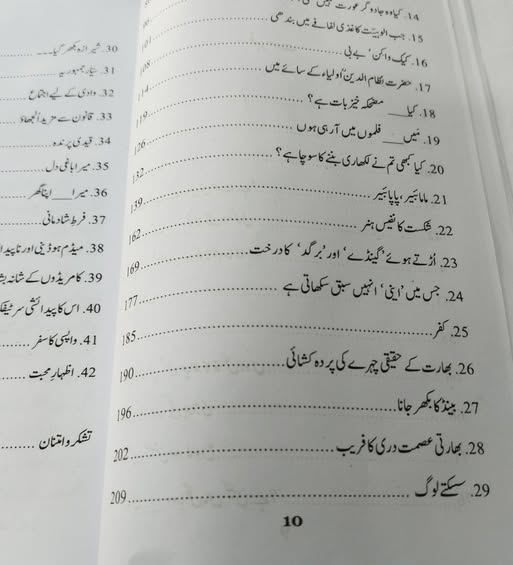 14. کیا وہ جادوگر عورت نہیں
15. جب الوہیت کاغذی لفافے میں بند تھی
16. کیک واکن، بے بی ........ 101
17. حضرت نظام الدین اولیاء کے سائے میں ........ 108
18. کیا ___ مضحکہ خیز بات ہے؟ ........ 114
19. میں ___ فلموں میں آ رہی ہوں ........ 119
20. کیا کبھی تم نے لکھاری بننے کا سوچا ہے؟ ........ 126
21. ماما بیئر، پاپا بیئر ........ 132
22. شکست کا نفیس ہنر ........ 139
23. اُڑتے ہوئے 'گینڈے' اور 'برگد' کا درخت ........ 162
24. جس میں 'اینی' انہیں سبق سکھاتی ہے ........ 169
25. کفر ........ 177
26. بھارت کے حقیقی چہرے کی پردہ کشائی ........ 185
27. بینڈ کا بکھر جانا ........ 190
28. بھارتی عصمت دری کا فریب ........ 196
29. سسکتے لوگ ........ 202
209
10
30. شیرازہ بکھر گیا
31. سیّار جمہوریہ
32. وادی کے لیے اجتماع
33. قانون سے مزید اُلجھاؤ
34. قیدی پرندہ
35. میرا باغی دل
36. میرا ___ اپنا گھر
37. فرطِ شادمانی
38. میڈم ہوڈینی اور ناپید
39. کامریڈوں کے شانہ بشا
40. اس کا پیدائشی سرٹیفک
41. واپسی کا سفر
42. اظہارِ محبت
تشکر و امتنان